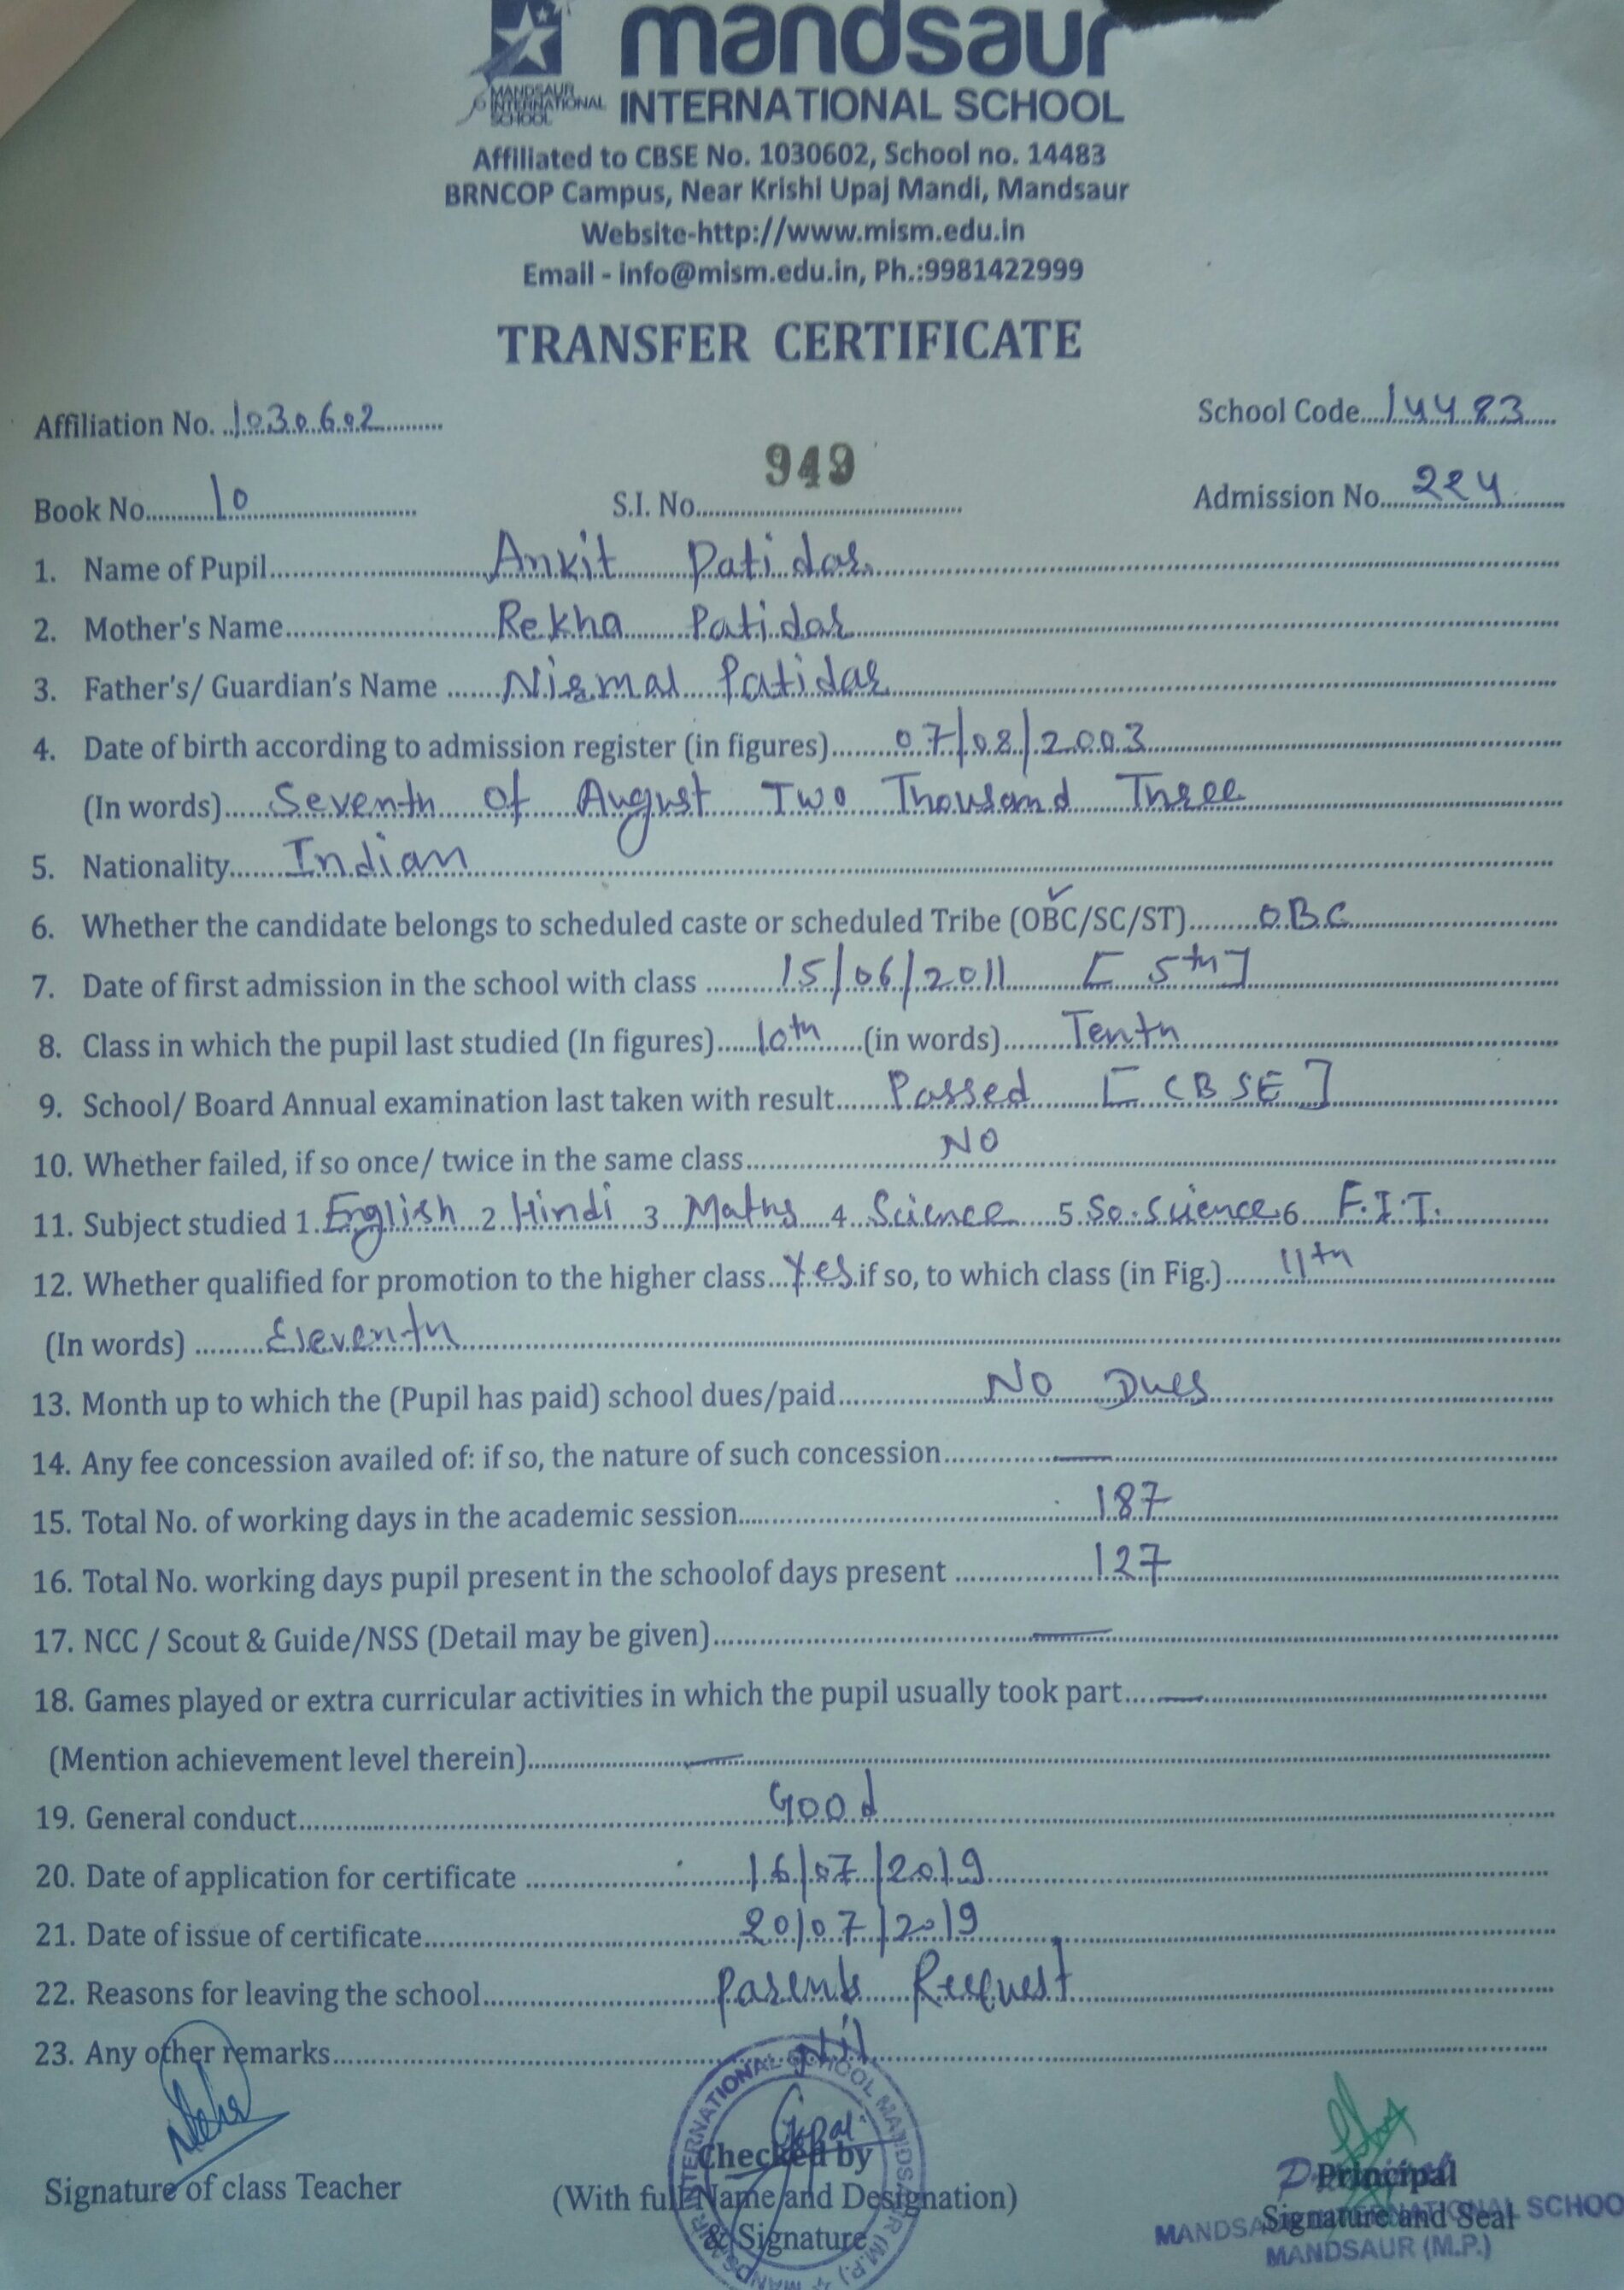 mandsaur
MANDSAUR
INTERNATIONAL
SCHOOL
INTERNATIONAL SCHOOL
Affiliated to CBSE No. 1030602, School no. 14483
BRNCOP Campus, Near Krishi Upaj Mandi, Mandsaur
Website-http://www.mism.edu.in
Email - info@mism.edu.in, Ph.:9981422999
TRANSFER CERTIFICATE
Affiliation No. 1030602 School Code 14483
Book No. 10 S.I. No. 949 Admission No. 224
1. Name of Pupil Ankit Patidar
2. Mother's Name Rekha Patidar
3. Father's/ Guardian's Name Nirmal Patidar
4. Date of birth according to admission register (in figures) 07/08/2003
(In words) Seventh of August Two Thousand Three
5. Nationality Indian
6. Whether the candidate belongs to scheduled caste or scheduled Tribe (OBC/SC/ST) OBC
7. Date of first admission in the school with class 15/06/2011 [5th]
8. Class in which the pupil last studied (In figures) 10th (in words) Tenth
9. School/ Board Annual examination last taken with result Passed [CBSE]
10. Whether failed, if so once/ twice in the same class NO
11. Subject studied 1. English 2. Hindi 3. Maths 4. Science 5. So. Science 6. F.I.T.
12. Whether qualified for promotion to the higher class Yes if so, to which class (in Fig.) 11th
(In words) Eleventh
13. Month up to which the (Pupil has paid) school dues/paid No Dues
14. Any fee concession availed of: if so, the nature of such concession —
15. Total No. of working days in the academic session 187
16. Total No. working days pupil present in the schoolof days present 127
17. NCC / Scout & Guide/NSS (Detail may be given) —
18. Games played or extra curricular activities in which the pupil usually took part —
(Mention achievement level therein) —
19. General conduct Good
20. Date of application for certificate 16/07/2019
21. Date of issue of certificate 20/07/2019
22. Reasons for leaving the school Parents Request
23. Any other remarks Nil
Signature of class Teacher
Checked by
(With full Name and Designation)
& Signature
Principal
Signature and Seal
Principal
MANDSAUR INTERNATIONAL SCHOO
MANDSAUR (M.P.)
INTERNATIONAL SCHOOL MANDSAUR (M.P.)